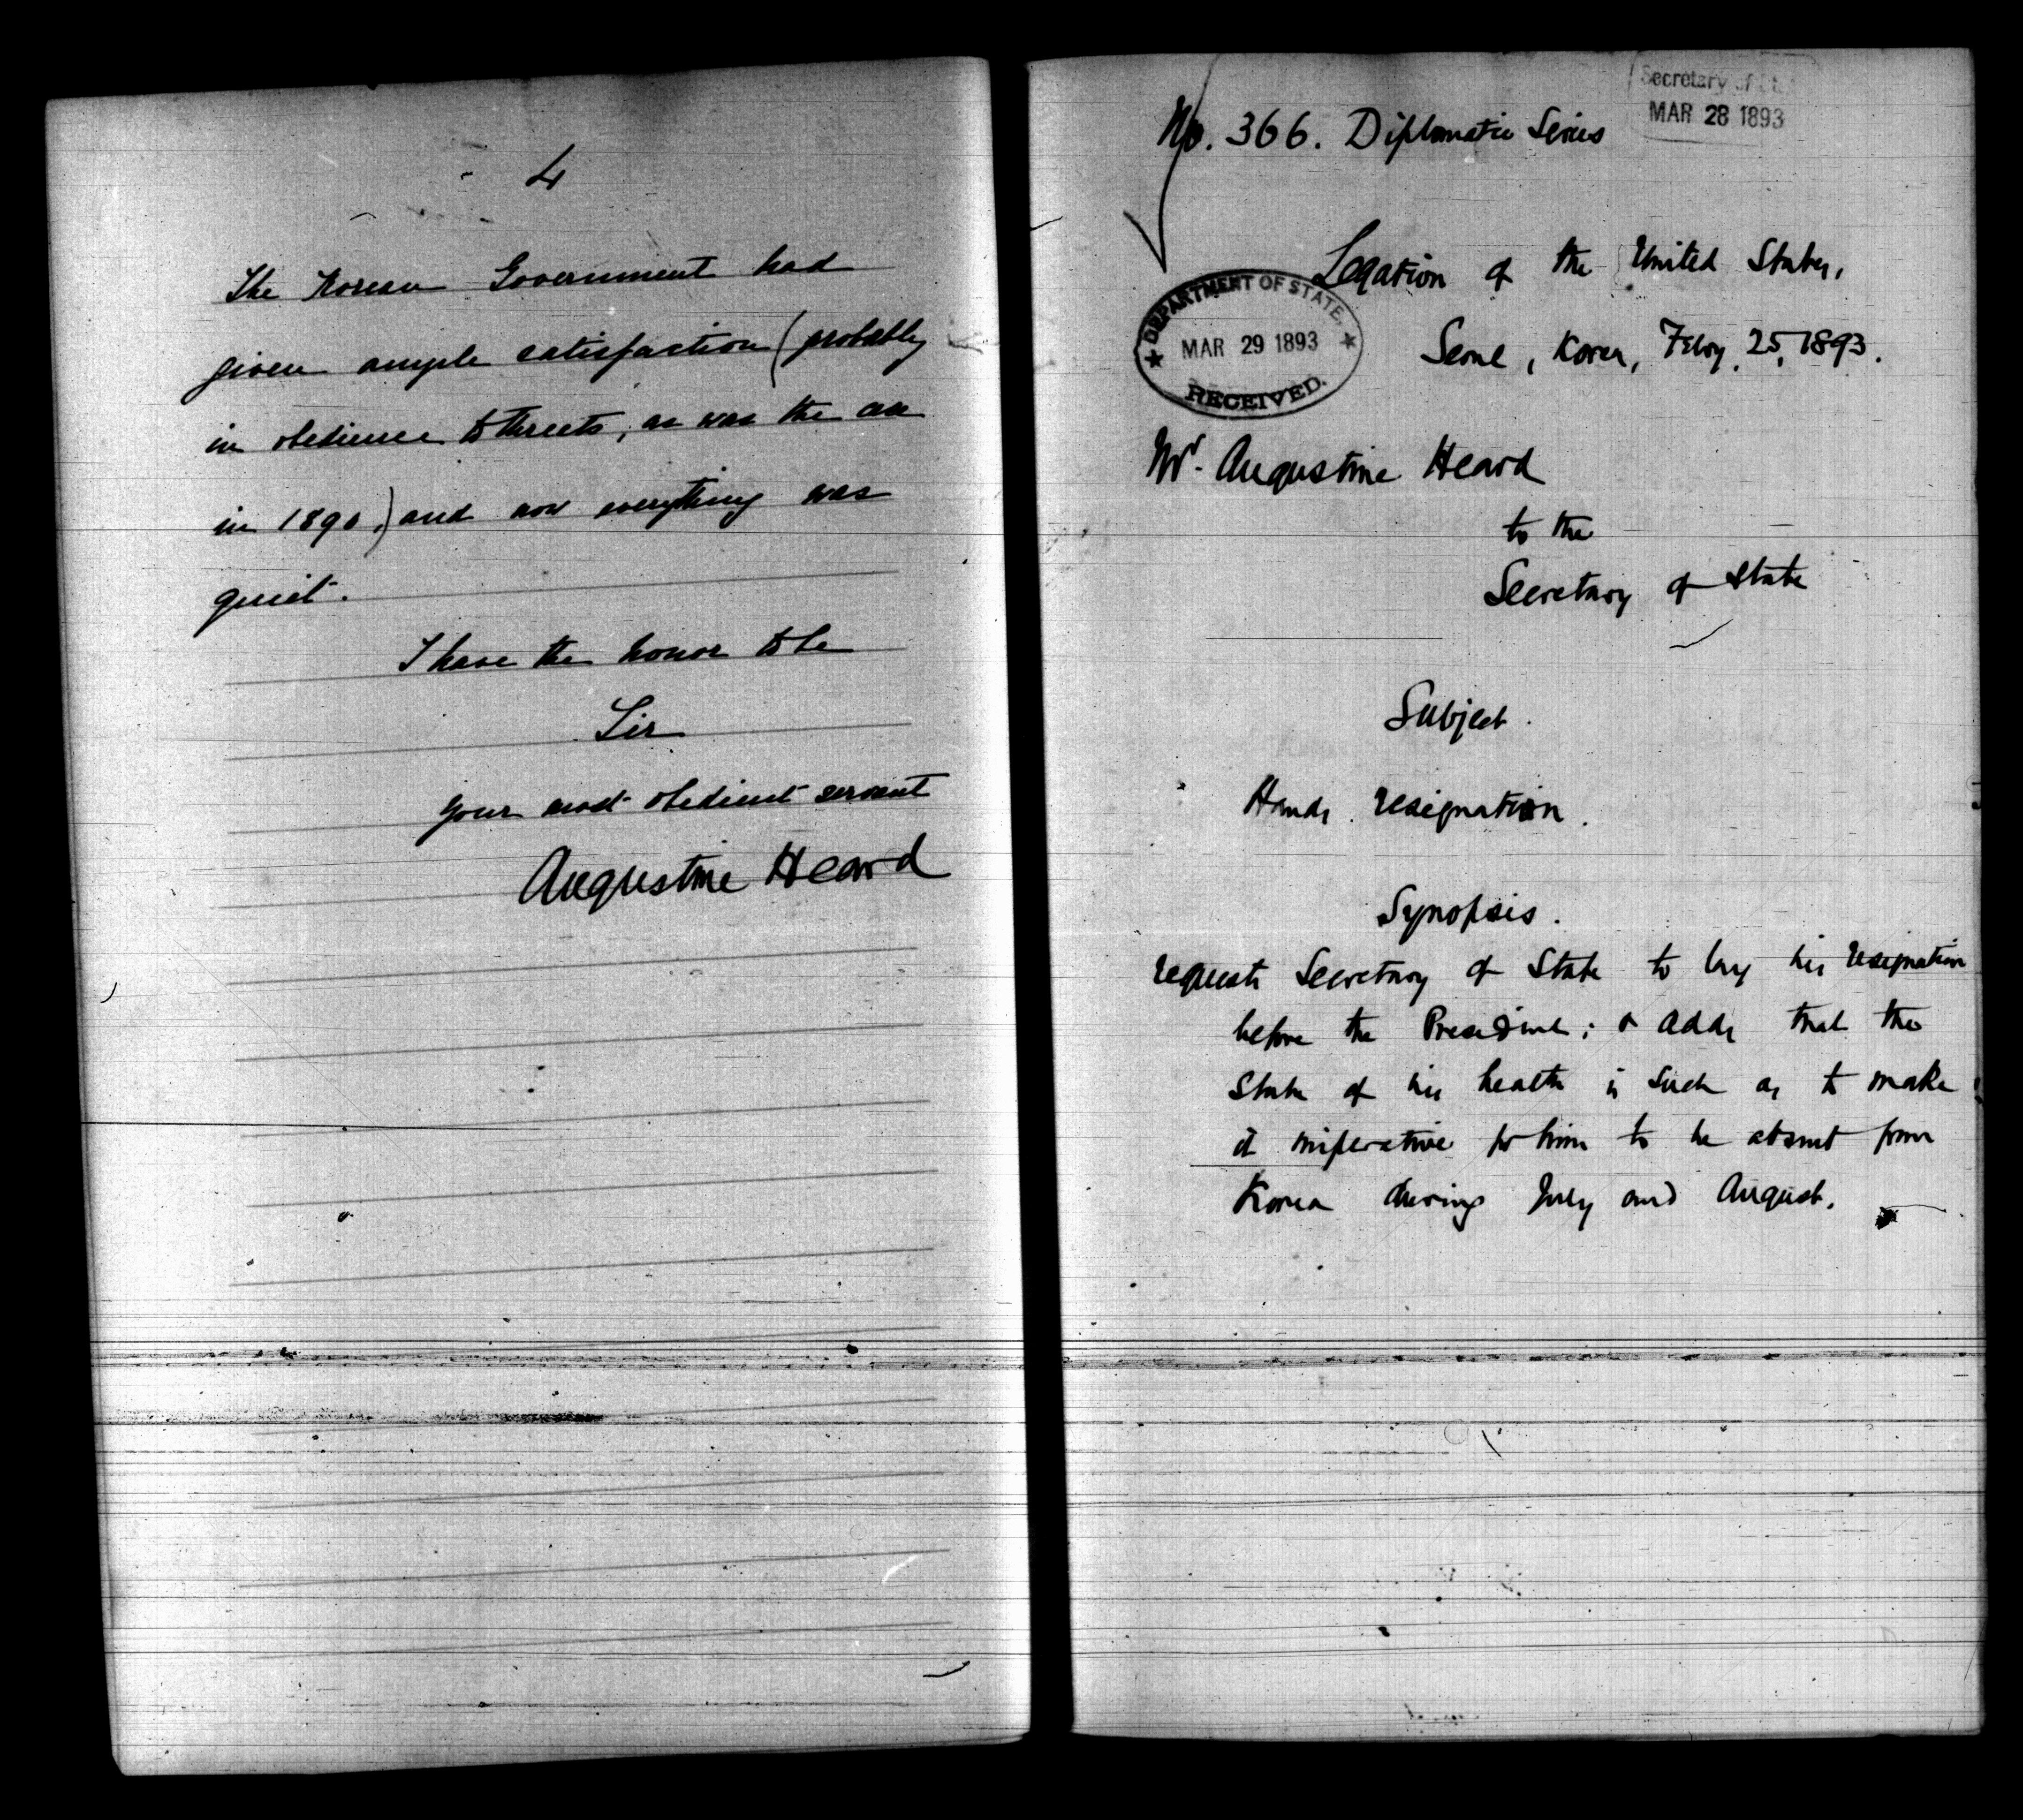 4
The Korean Government had
given ample satisfaction (probably
in obedience to threats, as was the case
in 1890,) and now everything was
quiet.
I have the honor to be
Sir
Your most obedient servant
Augustine Heard
Secretary of St
MAR 28 1893
No. 366. Diplomatic Series
Legation of the United States,
DEPARTMENT OF STATE,
MAR 29 1893
RECEIVED.
Seoul, Korea, Feby. 25, 1893.
Mr. Augustine Heard
to the
Secretary of State
Subject.
Hands resignation.
Synopsis.
requests Secretary of State to lay his resignation
before the President; & adds that the
State of his health is such as to make
it imperative for him to be absent from
Korea during July and August.